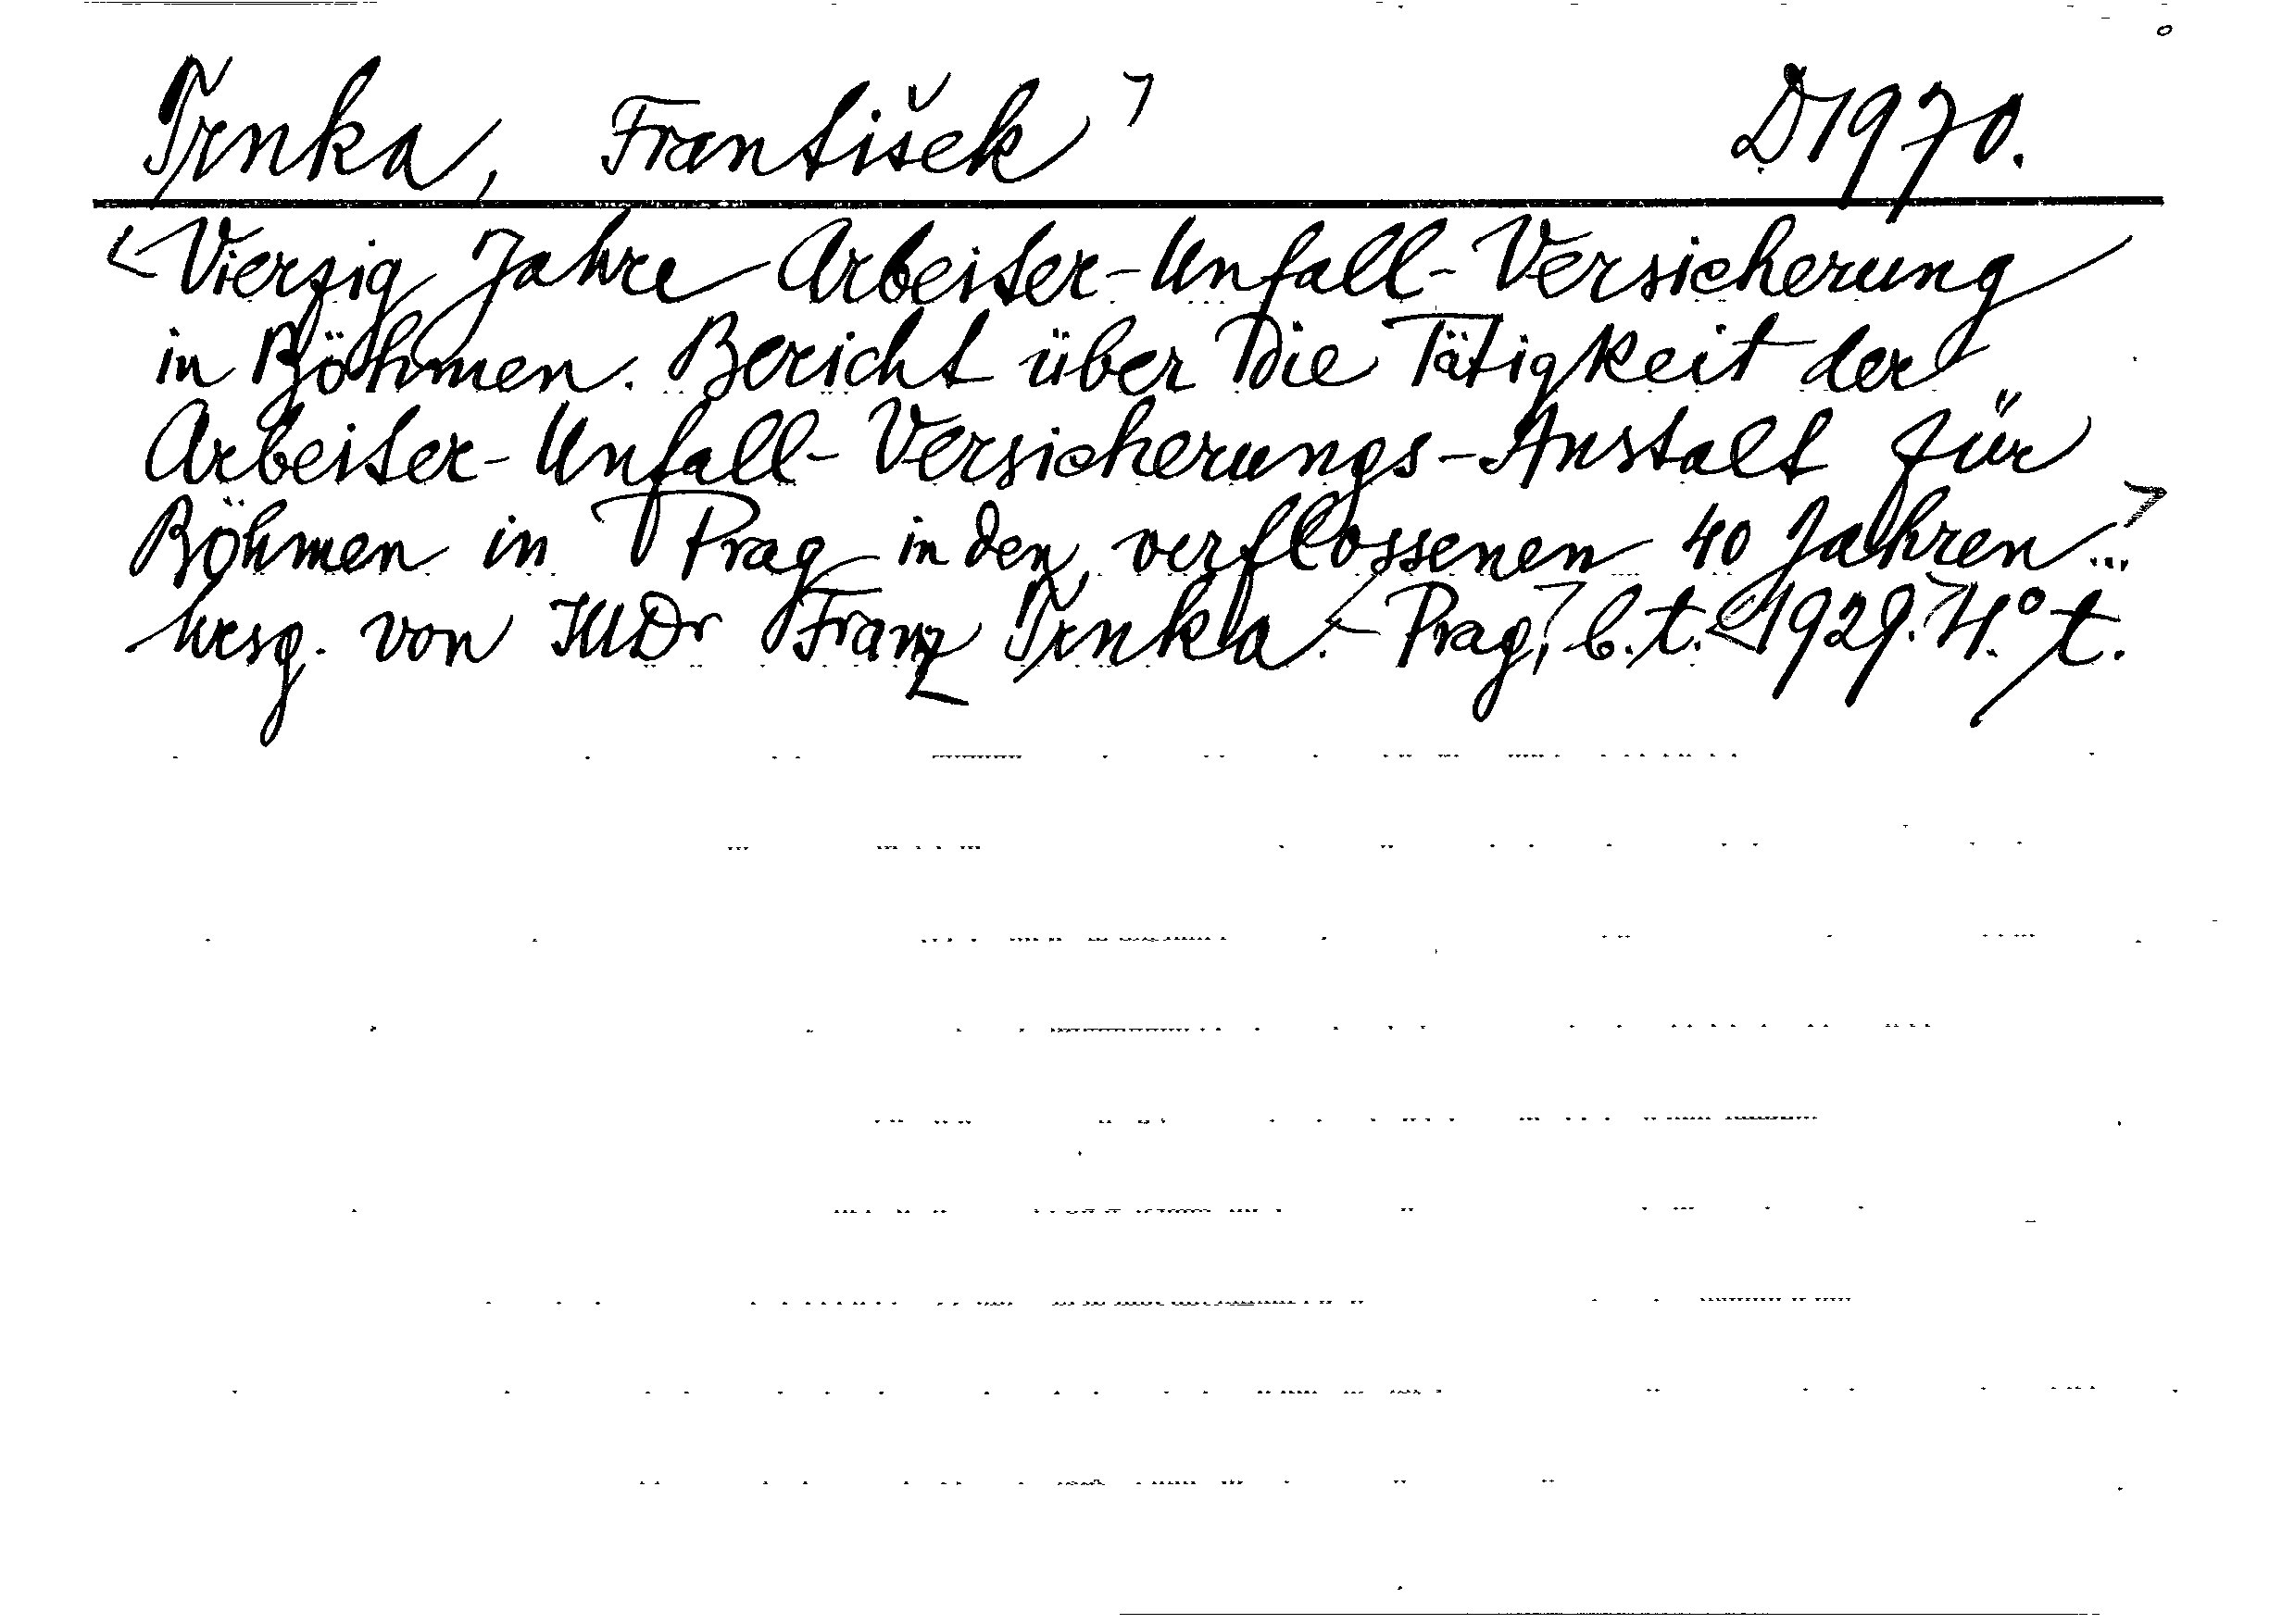 Trnka, František ⁊ D 1970.
<Vierzig Jahre Arbeiter-Unfall-Versicherung
in Böhmen. Bericht über die Tätigkeit der
Arbeiter-Unfall-Versicherungs-Anstalt für
Böhmen in Prag in den verflossenen 40 Jahren...>
hrsg. von JUDr Franz Trnka.< Prag,> b.t. <1929.> 4.° t.